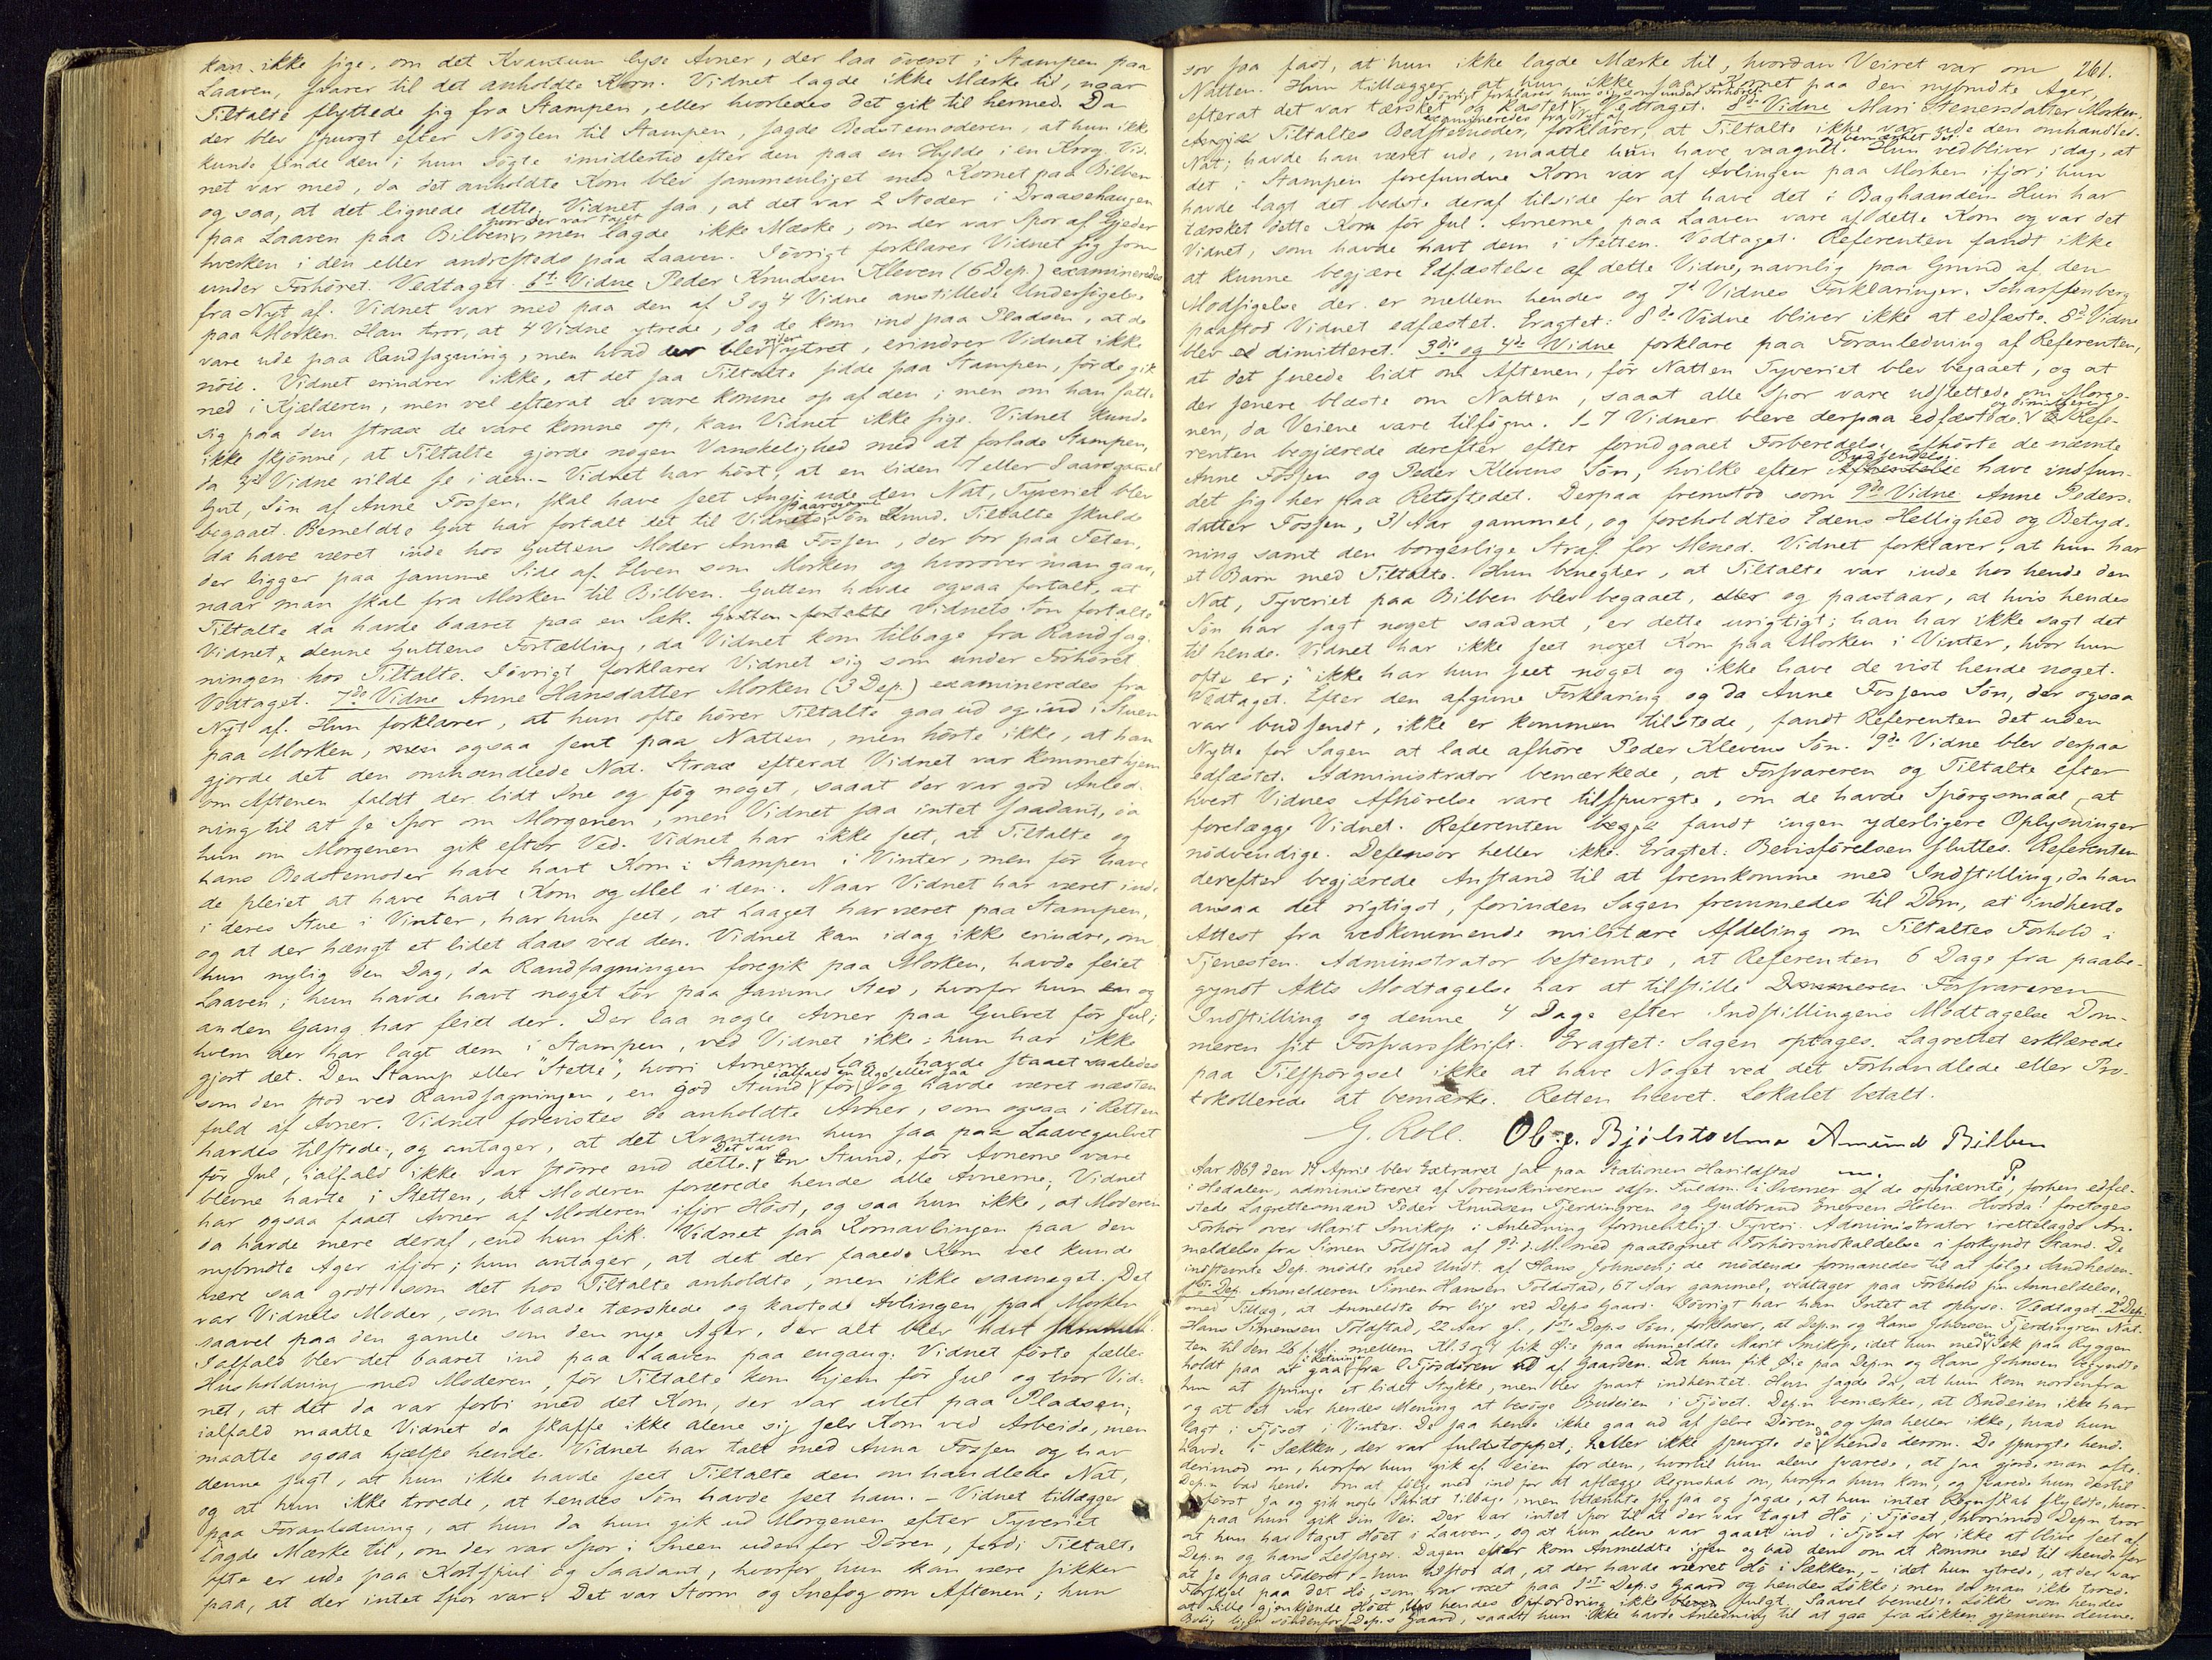 kan ikke sige, om det Kvantum lyse Avner, der laa överst i Stampen paa
Laaven, svarer til det anholdte Korn. Vidnet lagde ikke Mærke til, naar
Tiltalte flyttede sig fra Stampen, eller hvorledes det gik til hermed. Da
der blev spurgt efter Nöglen til Stampen, sagde Bedstemoderen, at hun ikke
kunde finde den; hun sögte imidlertid efter den paa en Hylde i en Krog. Vid-
net var med, da det anholdte Korn blev sammenliget med Kornet paa Bilben
og saa, at det lignede dette. Vidnet saa, at det var 2 Steder i Draasehaugen
paa Laaven paa Bilben, hvor der var taget, men lagde ikke Mærke, om der var Spor af Gjeder
hverken i den eller andresteds paa Laaven. Iövrigt forklarer Vidnet sig som
under Forhöret. Vedtaget. 6te Vidne Peder Knudsen Kleven (6 Dep.) examineredes
fra Nyt af. Vidnet var med paa den af 3 og 4 Vidne anstillede Undersögelse
paa Morken. Han tror, at 4 Vidne ytrede, da de kom ind paa Pladsen, at de
vare ude paa Randsagning, men hvad der blev videre ytret, erindrer Vidnet ikke
nöie. Vidnet erindrer ikke, at det saa Tiltalte sidde paa Stampen, för de gik
ned i Kjælderen, men vel efterat de vare komne op af den; men om han satte
sig paa den strax de vare komne op, kan Vidnet ikke sige. Vidnet kunde
ikke skjönne, at Tiltalte gjorde nogen Vanskelighed med at forlade Stampen,
da 3die Vidne vilde se i den. - Vidnet har hört, at en liden 7 eller 8 aars gammel
Gut, Sön af Anne Fossen, skal have seet Angj. ude den Nat, Tyveriet blev
begaaet. Bemeldte Gut har fortalt det til Vidnets 8 aars gamle Sön Knud. Tiltalte skulde
da have været inde hos Guttens Moder Anne Fossen, der bor paa Feten,
der ligger paa samme Side af Elven som Morken og hvorover man gaar,
naar man skal fra Morken til Bilben. Gutten havde ogsaa fortalt, at
Tiltalte da havde baaret paa en Sæk. Gutten fortalte Vidnets Sön fortalte
Vidnet denne Guttens Fortælling, da Vidnet kom tilbage fra Randsag-
ningen hos Tiltalte. Iövrigt forklarer Vidnet sig som under Forhöret.
Vedtaget. 7de Vidne Anne Hansdatter Morken (3 Dep.) examineredes fra
Nyt af. Hun forklarer, at hun ofte hörer Tiltalte gaa ud og ind i Stuen
paa Morken, men ogsaa sent paa Natten, men hörte ikke, at han
gjorde det den omhandlede Nat. Strax efterat Vidnet var kommet hjem
om Aftenen faldt der lidt Sne og fög noget, saaat der var god Anled-
ning til at se Spor om Morgenen, men Vidnet saa intet saadant, da
hun om Morgenen gik efter Ved. Vidnet har ikke seet, at Tiltalte og
hans Bedstemoder have havt Korn i Stampen i Vinter, men för have
de pleiet at have havt Korn og Mel i den. Naar Vidnet har været inde
i deres Stue i Vinter, har hun seet, at Laaget har været paa Stampen,
og at der hængt et lidet Laas ved den. Vidnet kan idag ikke erindre, om
hun nylig den Dag, da Randsagningen foregik paa Morken, havde feiet
Laaven; hun havde havt noget Löv paa samme Sted, hvorfor hun en og
anden Gang har feiet der. Der laa nogle Avner paa Gulvet för Jul;
hvem der har lagt dem i Stampen, ved Vidnet ikke; hun har ikke
gjort det. Den Stamp eller "Stette", hvori Avnerne laa havde staaet saaledes
som den stod ved Randsagningen, en god Stund, ialfald en Uge eller saa för og havde været næsten
fuld af Avner. Vidnet forevistes de anholdte Avner, som ogsaa i Retten
havdes tilstede, og antager, at det Kvantum hun saa paa Laavegulvet
för Jul, ialfald ikke var större end dette. Det var en Stund, för Avnerne vare
blevne havte i Stetten, at Moderen forærede hende alle Avnerne; Vidnet
har ogsaa faaet Avner af Moderen ifjor Höst, og saa hun ikke, at Moderen
da havde mere deraf, end hun fik. Vidnet saa Kornavlingen paa den
nybrudte Ager ifjor; hun antager, at det der faaede Korn vel kunde
være saa godt som det hos Tiltalte anholdte, men ikke saameget. Det
var Vidnets Moder, som baade tærskede og kastede Avlingen paa Morken
saavel paa den gamle som den nye Ager, der alt blev havt sammen.
Ialfald blev det baaret ind paa Laaven paa engang. Vidnet förte fælles
Husholdning med Moderen, för Tiltalte kom hjem för Jul og tror Vid-
net, at det da var forbi med det Korn, der var avlet paa Pladsen;
ialfald maatte Vidnet da skaffe ikke alene sig selv Korn ved Arbeide, men
maatte ogsaa hjælpe hende. Vidnet har talt med Anna Fossen og har
denne sagt, at hun ikke havde seet Tiltalte den omhandlede Nat,
og at hun ikke troede, at hendes Sön havde seet ham. - Vidnet tillægger
paa Foranledning, at hun da hun gik ud Morgenen efter Tyveriet
lagde Mærke til, om der var Spor i Sneen udenfor Dören, fordi Tiltalte
ofte er ude paa Kortspil og Saadant, hvorfor hun kan være sikker
paa, at der intet Spor var. Det var Storm og Snefog om Aftenen; hun
261.
sov saa fast, at hun ikke lagde Mærke til, hvordan Veiret var om
Natten. Hun tillægger, at hun ikke saa Kornet paa den nybrudte Ager,
efterat det var tærsket og kastet. Iövrigt forklarer hun sig som under Forhöret. Vedtaget. 8de Vidne Mari Stenersdatter Morken
Tiltaltes Bedstemoder, examineredes fra Nyt af forklarer, at Tiltalte ikke var ude den omhandlede
Nat; havde han været ude, maatte hun have vaagnet og bemærket det. Hun vedbliver idag, at
det i Stampen forefundne Korn var af Avlingen paa Morken ifjor; hun
havde lagt det bedste deraf tilside for at have det i Baghaanden. Hun har
tærsket dette Korn för Jul. Avnerne paa Laaven vare af dette Korn og var det
Vidnet, som havde havt dem i Stetten. Vedtaget. Referenten fandt ikke
at kunne begjære Edfæstelse af dette Vidne, navnlig paa Grund af den
Modsigelse der er mellem hendes og 7de Vidnes Forklaringer. Scharffenberg
paastod Vidnet edfæstet. Eragtet: 8de Vidne bliver ikke at edfæste. 8de Vidne
blev dimitteret. 3die og 4de Vidne forklare paa Foranledning af Referenten,
at det sneede lidt om Aftenen, för Natten Tyveriet blev begaaet, og at
der senere blæste om Natten, saaat alle Spor vare udslettede om Morge-
nen, da Veiene vare tilfögne. 1-7 Vidner bleve derpaa edfæstede og dimitterede. Refe-
renten begjærede derefter efter forudgaaet Forberedelse afhörte de nævnte
Anne Fossen og Peder Klevens Sön, hvilke efter Budsendelse have indfun-
det sig her paa Retsstedet. Derpaa fremstod som 9de Vidne Anne Peders-
datter Fossen, 31 Aar gammel, og foreholdtes Edens Hellighed og Betyd-
ning samt den borgerlige Straf for Mened. Vidnet forklarer, at hun har
et Barn med Tiltalte. Hun benegter, at Tiltalte var inde hos hende den
Nat, Tyveriet paa Bilben blev begaaet, og paastaar, at hvis hendes
Sön har sagt noget saadant, er dette urigtigt; han har ikke sagt det
til hende. Vidnet har ikke seet noget Korn paa Morken i Vinter, hvor hun
ofte er; ikke har hun seet noget og ikke have de vist hende noget.
Vedtaget. Efter den afgivne Forklaring og da Anne Fossens Sön, der ogsaa
var budsendt, ikke er kommen tilstede, fandt Referenten det uden
Nytte for Sagen at lade afhöre Peder Klevens Sön. 9de Vidne blev derpaa
edfæstet. Administrator bemærkede, at Forsvareren og Tiltalte efter
hvert Vidnes Afhörelse vare tilspurgte, om de havde Spörgsmaal at
forelægge Vidnet. Referenten fandt ingen yderligere Oplysninger
nödvendige. Defensor heller ikke. Eragtet: Bevisförelsen sluttes. Referenten
derefter begjærede Anstand til at fremkomme med Indstilling, da han
ansaa det rigtigst, forinden Sagen fremmedes til Dom, at indhente
Attest fra vedkommende militære Afdeling om Tiltaltes Forhold i
Tjenesten. Adminstrator bestemte, at Referenten 6 Dage fra paabe-
gyndt Akts Modtagelse har at tilstille Forsvareren
Indstilling og denne 4 Dage efter Indstillingens Modtagelse Dom-
meren sit Forsvarsskrift. Eragtet: Sagen optages. Lagrettet erklærede
paa Tilspörgsel ikke at have Noget ved det Forhandlede eller Pro-
tokollerede at bemærke. Retten hævet. Lokalet betalt.
G. Roll. Ol. J. Bjölstadmo Amund Bilben
Aar 1869 den 14 April blev Extraret sat paa Stationen Haarildstad
i Hedalen, administreret af Sorenskriverens edsv. Fuldm. i Overvær af de opnævnte, forhen edfæ-
stede Lagrettesmænd Peder Knudsen Fjerdingren og Gudbrand Enersen Holen. Hvorda! foretoges
Forhör over Marit Snikop i Anledning formentligt Tyveri. Administrator irettelagde An-
meldelse fra Simen Toldstad af 9de d. M. med paategnet Forhörsindkaldelse i forkyndt Stand. De
indstevnte Dep. mödte med Undt. af Hans Johnsen; de mödende formanedes til at fölge Sandheden.
1ste Dep. Anmelderen Simen Hansen Toldstad, 67 Aar gammel, vedtager paa Forehold sin Anmeldelse,
med Tillæg, at Anmeldte bor lige ved Dep.s Gaard. Iövrigt har han Intet at oplyse. Vedtaget. 2d Dep.
Hans Simensen Toldstad, 22 Aar gl., 1ste Dep.s Sön, forklarer, at Dep.n og Hans Johnsen Fjerdingren Nat-
ten til den 26 f. M. mellem Kl. 3 og 4 fik Öie paa Anmeldte Marit Snikop, idet hun med en Sæk paa Ryggen
holdt paa at gaa i Retning fra Fjösdören ud af Gaarden. Da hun fik Öie paa Dep.n og Hans Johnsen begyndte
hun at springe et lidet Stykke, men blev snart indhentet. Hun sagde da, at hun kom nordenfra
og at det var hendes Mening at besöge Budeien i Fjöset. Dep.n bemærker, at Budeien ikke har
lagt i Fjöset i Vinter. De saa hende ikke gaa ud af selve Dören, og saa heller ikke, hvad hun
havde i Sækken, der var fuldstoppet; heller ikke spurgte de da hende derom. De spurgte hende
derimod om, hvorfor hun gik af Veien for dem, hvortil hun alene svarede, at saa gjorde man ofte.
Dep.n bad hende om at fölge med ind for at aflægge Regnskab om, hvorfra hun kom, og svarede hun dertil
först ja og gik nogle Skridt tilbage, men betænkte sig saa og sagde, at hun intet Regnskab skyldte, hvor-
paa hun gik sin Vei. Der var intet Spor til at der var taget Hö i Fjöset, hvorimod Dep.n tror
at hun har taget Höet i Laaven, og at hun alene var gaaet ind i Fjöset for ikke at blive seet af
Dep.n og hans Ledsager. Dagen efter kom Anmeldte igjen og bad dem om at komme ned til hende for
at se paa Foderet, - hun tilstod da, at der havde været Hö i Sækken, - idet hun ytrede, at der var
Forskjel paa det Hö, som var voxet paa 1ste Dep.s Gaard og hendes Lökke; men da man ikke troede
at ville gjenkjende Höet, blev hendes Opfordring ikke fulgt. Saavel bemeldte Lökke som hendes
Bolig ligger söndenfor Dep.s Gaard, saaat hun ikke havde Anledning til at gaa fra Lökken gjennem denne.